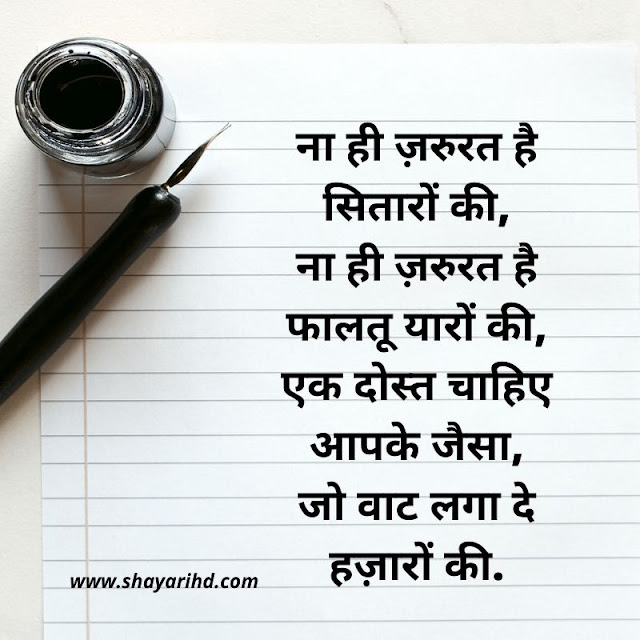 ना ही ज़रुरत है
सितारों की,
ना ही ज़रुरत है
फालतू यारों की,
एक दोस्त चाहिए
आपके जैसा,
जो वाट लगा दे
हज़ारों की.
www.shayarihd.com